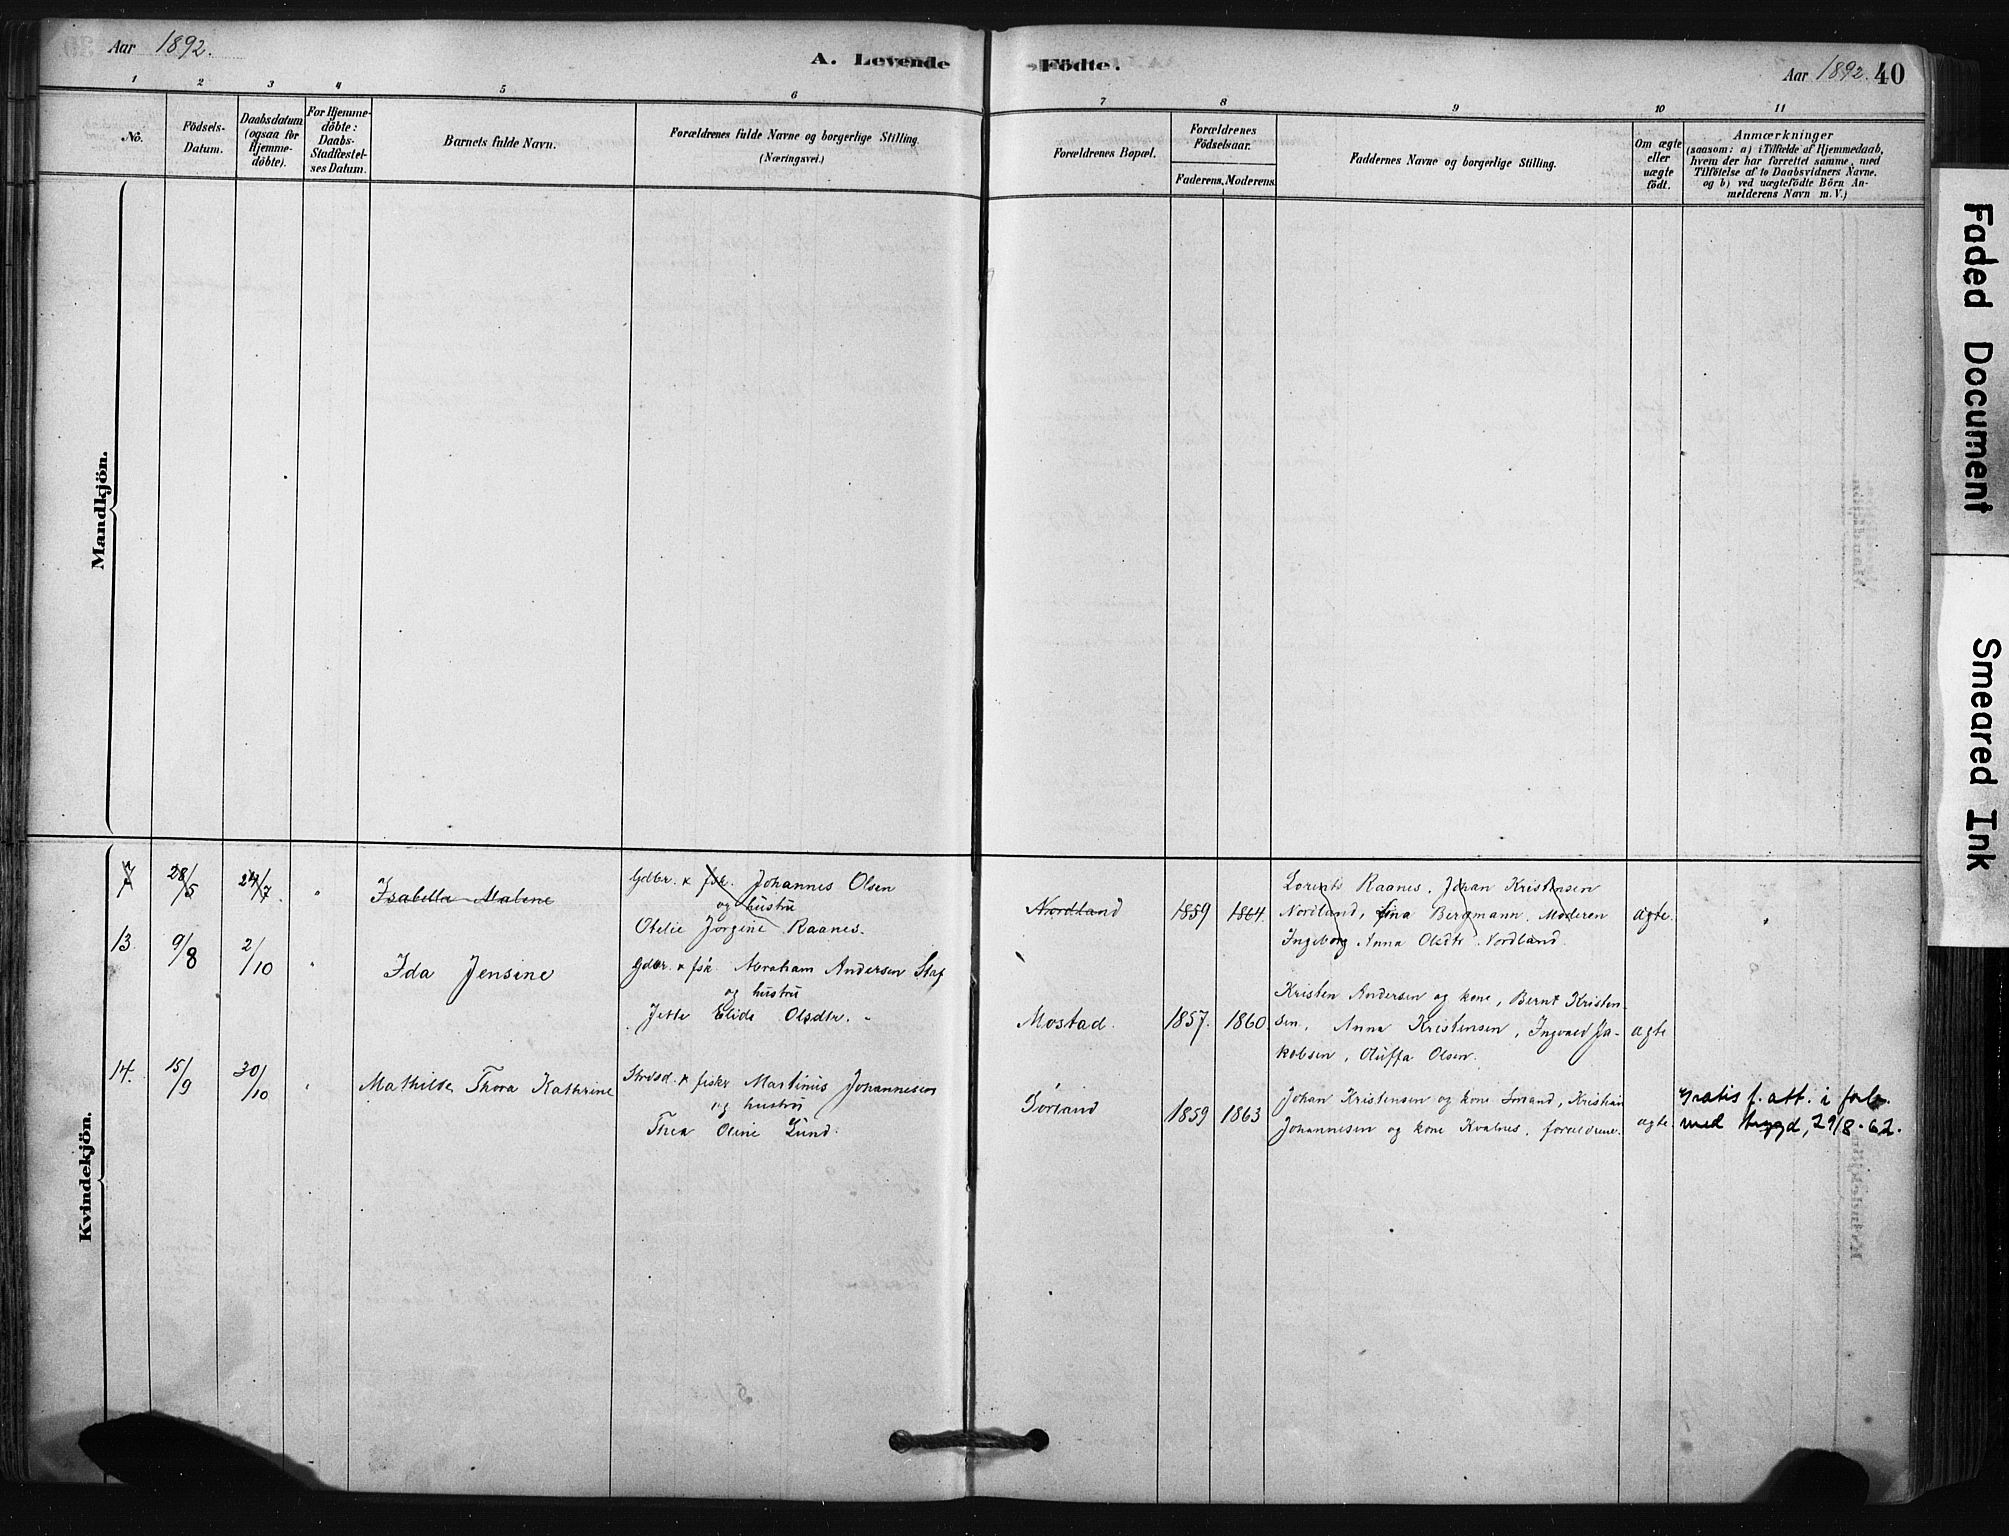 Aar 1892.
A. Levende Födte.
Aar 1892. 40
1 2 3 4 5 6 7 8 9 10 11
No.
Födsels-
Datum.
Daabsdatum
(ogsaa for
Hjemme-
döbte).
For Hjemme-
döbte:
Daabs-
Stadfæstel-
ses Datum.
Barnets fulde Navn.
Forældrenes fulde Navne og borgerlige Stilling.
(Næringsvei.)
Forældrenes Bopæl.
Forældrenes
Födselsaar.
Faderens. Moderens.
Faddernes Navne og borgerlige Stilling.
Om ægte
eller
uægte
födt.
Anmærkninger
(saasom: a) i Tilfælde af Hjemmedaab,
hvem der har forrettet samme, med
Tilföielse af to Daabsvidners Navne,
og b) ved uægtefödte Börn An-
melderens Navn m. V.)
Mandkjön.
Kvindekjön.
28/5 24/7 " Isabella Malene
Gdbr. & fsk. Johannes Olsen
og hustru
Otelie Jorgine Raanes.
Nordland 1859 1864.
Lorents Raanes. Johan Kristensen
Nordland, Bergmann. Moderen
Ingeborg Anna Olsdtr Nordland.
ægte. "
13. 9/8 2/10 " Ida Jensine
Gdbr. & fsk. Abraham Andersen
og hustru
Jette Elida Olsdtr.
Mostad. 1857. 1860.
Kristen Andersen og kone, Bernt Kristen-
sen, Anna Kristensen, Ingvald Ja-
kobsen, Oluffa Olsen.
ægte
14. 15/9 30/10 " Mathilde Thora Kathrine
Strdsd. & fisker Martinus Johannesen
og hustru
Thea Oline Lund.
Sörland 1859 1863
Johan Kristensen og kone Kristian
Johannesen og kone Kvalnes, forældrene.
ægte.
Gratis f. att. i forb.
med trygd, 29/8-62.
Faded Document
Smeared Ink